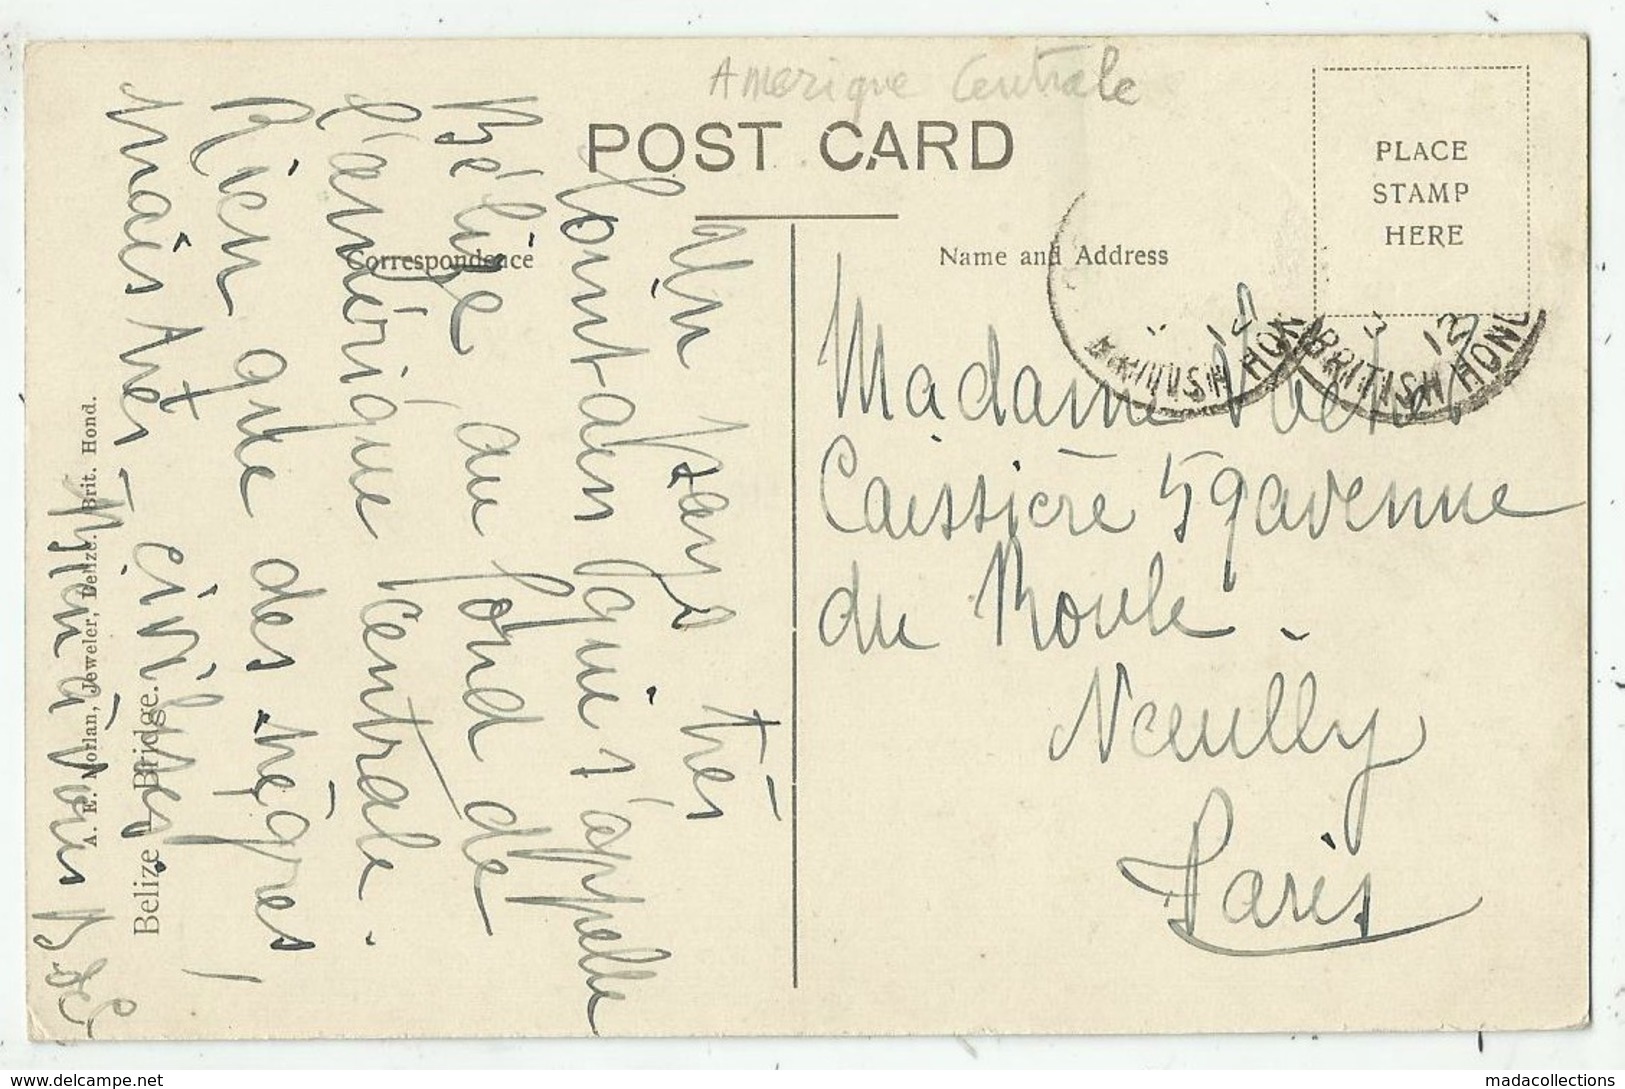 Amerique Centrale
POST CARD
PLACE
STAMP
HERE
Correspondence
Name and Address
Un pays très
lointain qui s'appelle
Bélize au fond de
l'amérique centrale.
Rien que des nègres,
mais très civilisés!
à vous
Madame
Caissière 59 avenue
du Roule.
Neuilly
Paris
BRITISH HON
12
BRITISH HOND
3 12
Belize - Bridge.
A. E. Morlan, Jeweler, Belize. Brit. Hond.
www.delcampe.net
madacollections